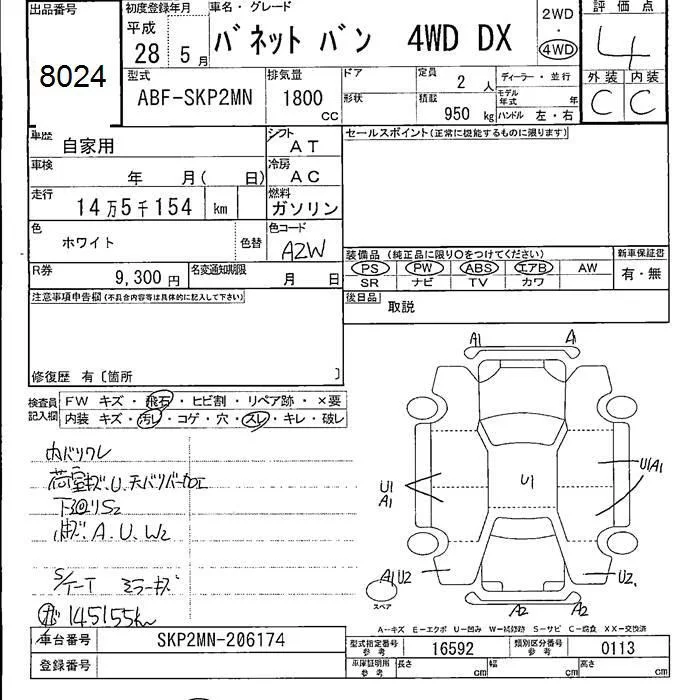 出品番号
8024
初度登録年月
平成 28 5月
車名・グレード
バネット バン 4WD DX
2WD
・
4WD
評価点
4
外装 内装
C C
型式
ABF-SKP2MN
排気量
1800 cc
ドア
形状
定員
2 人
積載
950 kg
ディーラー・並行
モデル年式 年
ハンドル 左・右
車歴
自家用
シフト
AT
セールスポイント(正常に機能するものに限ります)
車検
年 月( 日)
冷房
AC
走行
14万5千154 km
燃料
ガソリン
色
ホワイト
色替
色コード
A2W
装備品 (純正品に限り○をつけてください)
PS PW ABS エアB AW
SR ナビ TV カワ
新車保証書
有・無
R券
9,300 円
名変通知期限
月 日
後日品
取説
注意事項申告欄(不具合内容等は具体的に記入して下さい)
修復歴 有〔箇所 〕
検査員記入欄
FW キズ・飛石・ヒビ割・リペア跡・×要
内装 キズ・汚レ・コゲ・穴・スレ・キレ・破レ
内バリワレ
荷室キズ.U.天バリバーカエ
下廻りS2
A.U.W2
S/T-T ミラーキズ
145155km
A1 A1
U1
U1
A1
U1A1
A1U2
U2
A2 A2
スペア
A--キズ E--エクボ U--凹み W--補修跡 S--サビ C--腐食 XX--交換済
車台番号
SKP2MN-206174
登録番号
型式指定番号 参考
16592
類別区分番号 参考
0113
車庫証明用 参考
長さ cm
幅 cm
高さ cm